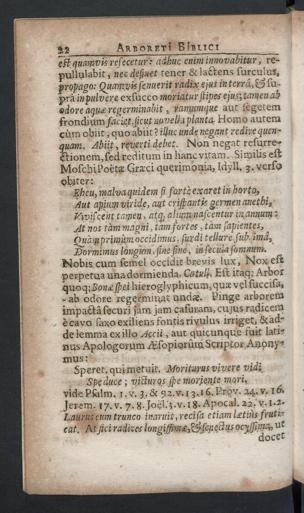 22 ARBORETI BIBLICI
est quamvis resecetur: adhuc enim innovabitur, re-
pullulabit, nec desinet tener & lactens surculus,
propago: Quamvis senuerit radix ejus in terrâ, & su-
pra in pulvere exsucco moriatur stipes ejus; tamen ab
odore aquæ regerminabit, ramumque aut segetem
frondium faciet, sicut novella planta. Homo autem
cùm obiit, quo abiit? illuc unde negant redire quen-
quam. Abiit, reverti debet. Non negat resurre-
ctionem, sed reditum in hanc vitam. Similis est
Moschi Poëtæ Græci querimonia, Idyll. 3. verso
obiter:
Eheu, malva quidem si fortè exaret in horto,
Aut apium viride, aut crispantis germen anethi,
Reviviscent tamen, atq; alium nascentur in annum:
At nos tàm magni, tam fortes, tàm sapientes,
Quàm primùm occidimus, surdi tellure sub imâ,
Dormimus longum, sine fine, in secula somnum.
Nobis cum semel occidit brevis lux, Nox est
perpetua una dormienda. Catull. Est itaq; Arbor
quoq; Bonæ spei hieroglyphicum, quæ vel succisa,
ab odore regerminat undæ. Pinge arborem
impactâ securi jam jam casuram, cujus radicem
è cavo saxo exiliens fontis rivulus irriget, & ad-
de lemma ex illo Accii, aut quicunque fuit lati-
nus Apologorum Æsopiorum Scriptor Anony-
mus:
Speret, qui metuit. Morituros vivere vidi
Spe duce; victuros spe moriente mori.
vide Psalm. 1. v. 3, & 92. v. 13. 16. Prov. 24. v. 16.
Jerem. 17. v. 7. 8. Joël. 3. v. 18. Apocal. 22. v. 1. 2.
Laurus cum trunco inaruit, recisa etiam lætiùs fruti-
cat. At fici radices longissimæ, & senectus ocyssima, ut
docet